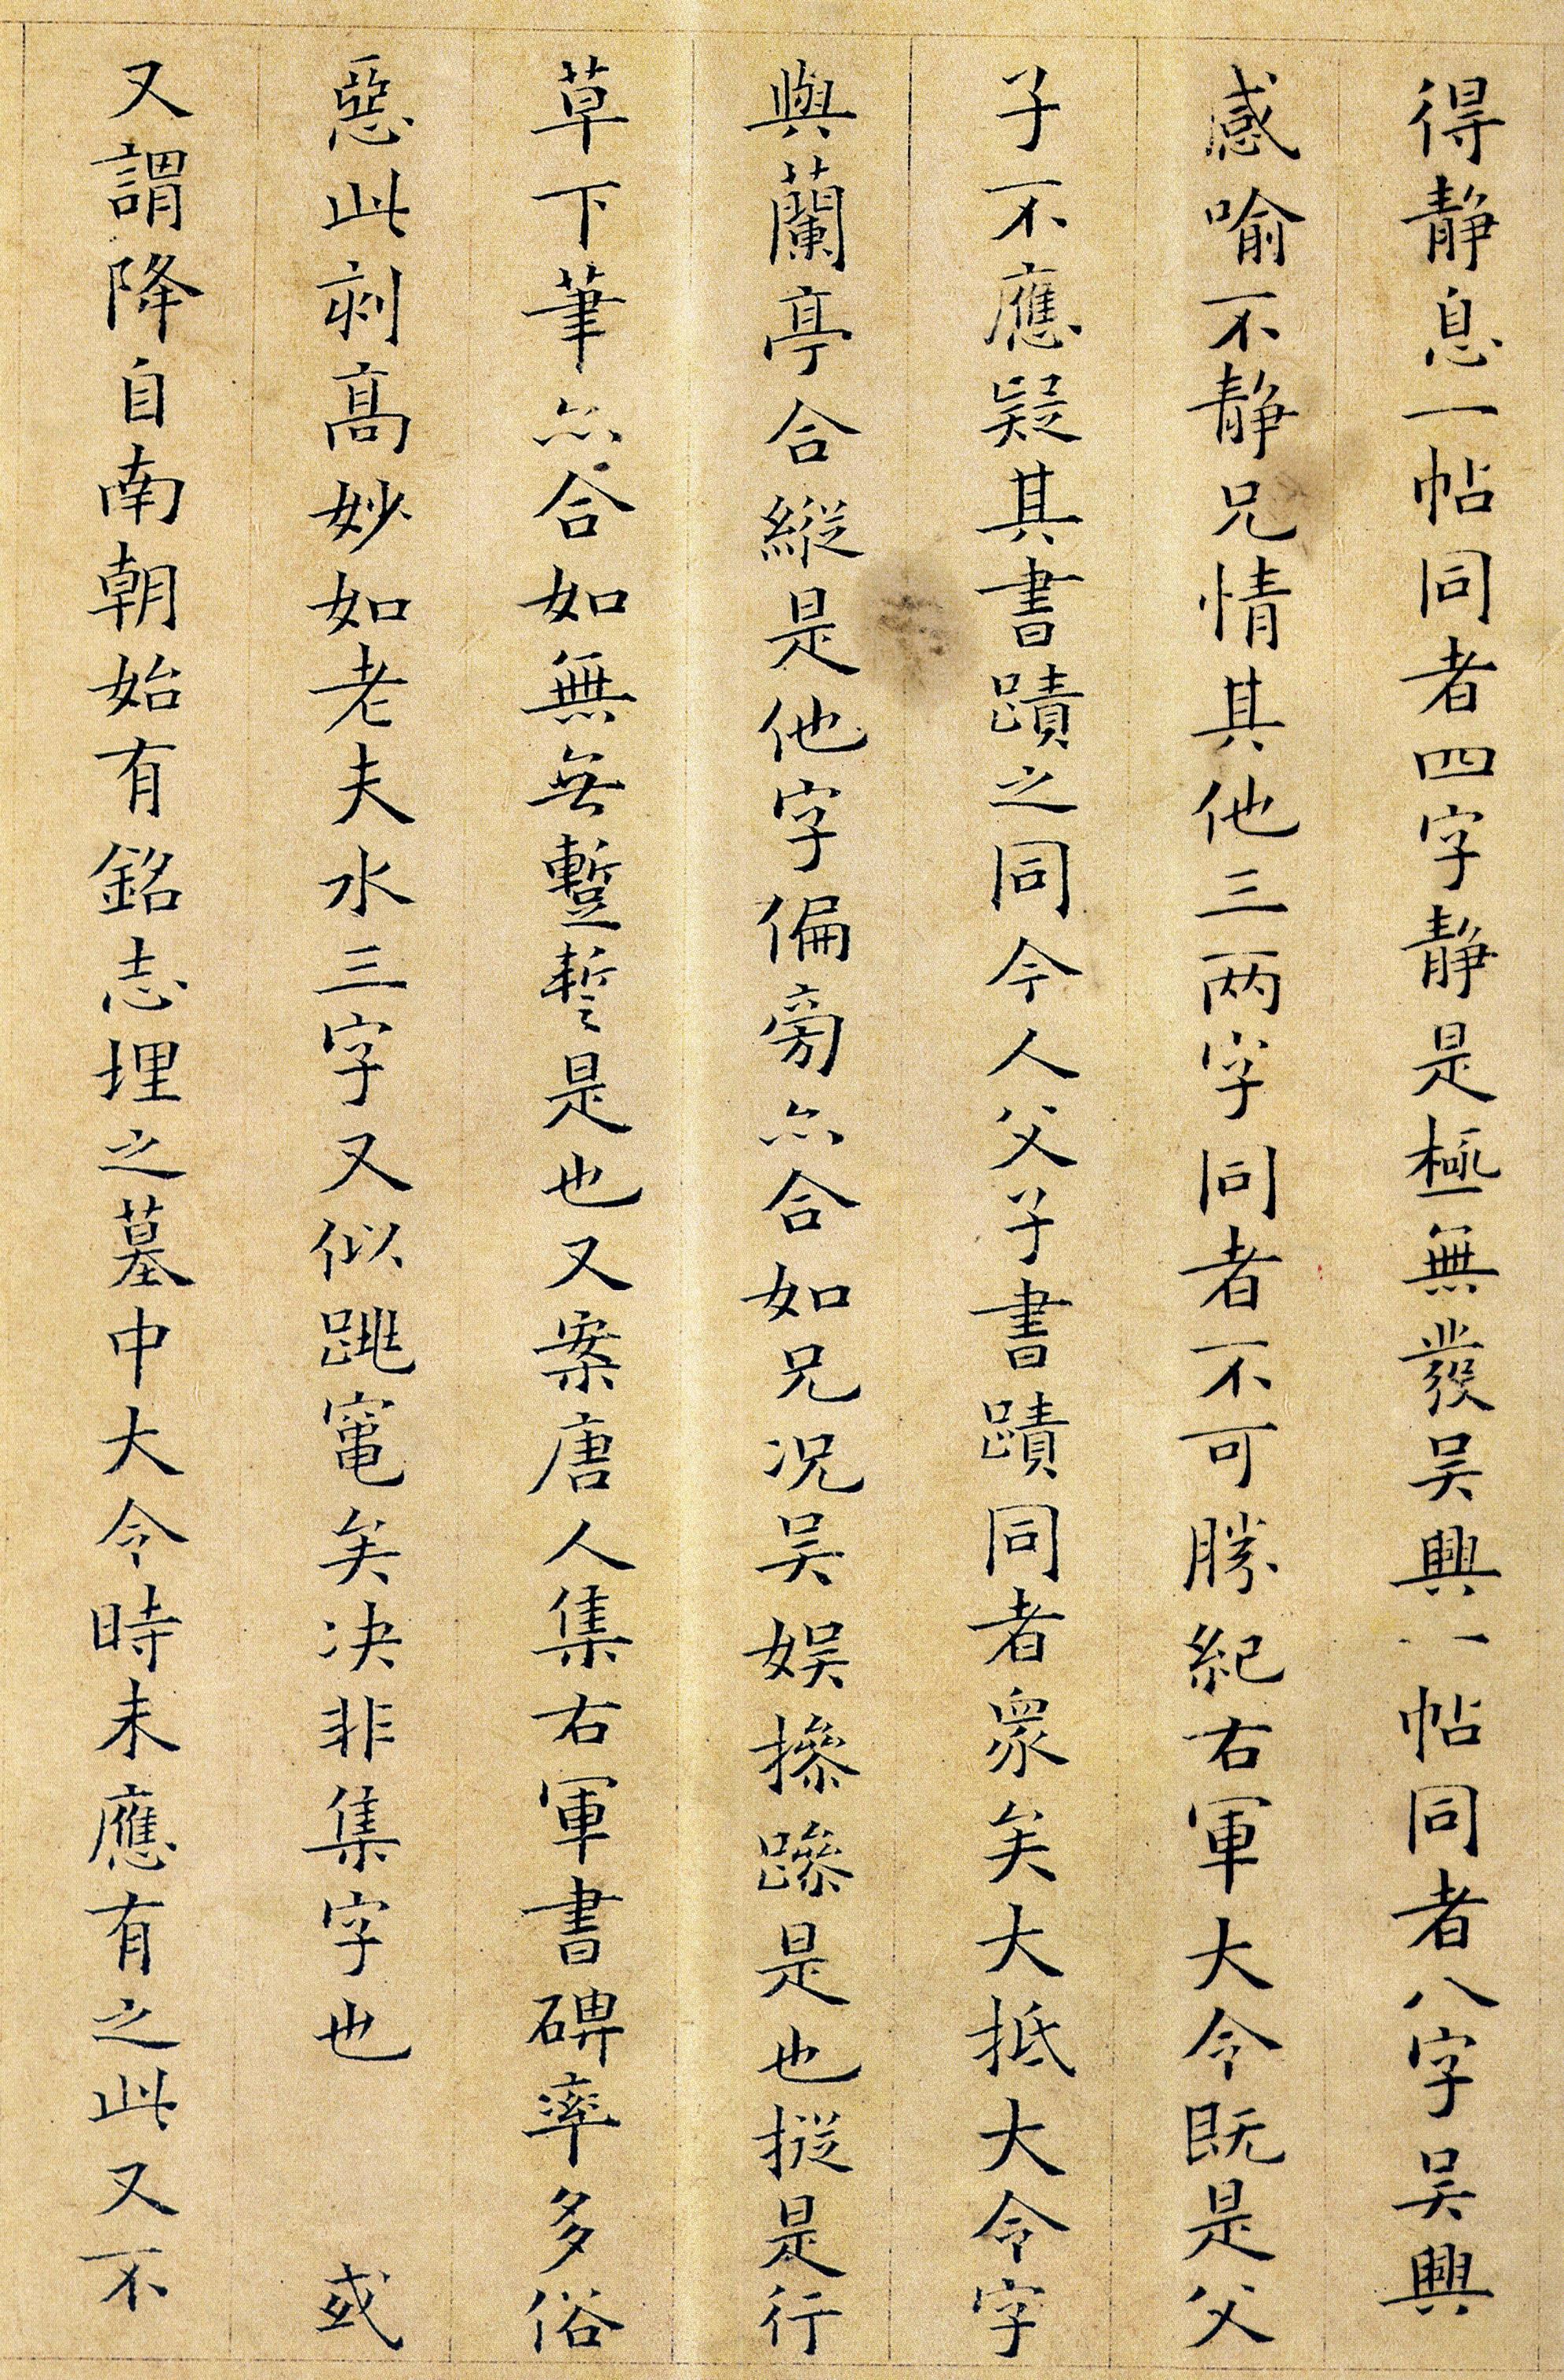 得静息一帖同者四字静是極無發吴興一帖同者八字吴興
感喻不静兄情其他三两字同者不可勝紀右軍大令既是父
子不應疑其書蹟之同今人父子書蹟同者衆矣大抵大令字
與蘭亭合縱是他字偏旁亦合如兄况吴娱摻蹘是也摐是行
草下筆亦合如無无蹔誓是也又案唐人集右軍書碑率多俗
惡此刻高妙如老夫水三字又似跳竄矣决非集字也 或
又謂降自南朝始有銘志埋之墓中大令時未應有之此又不